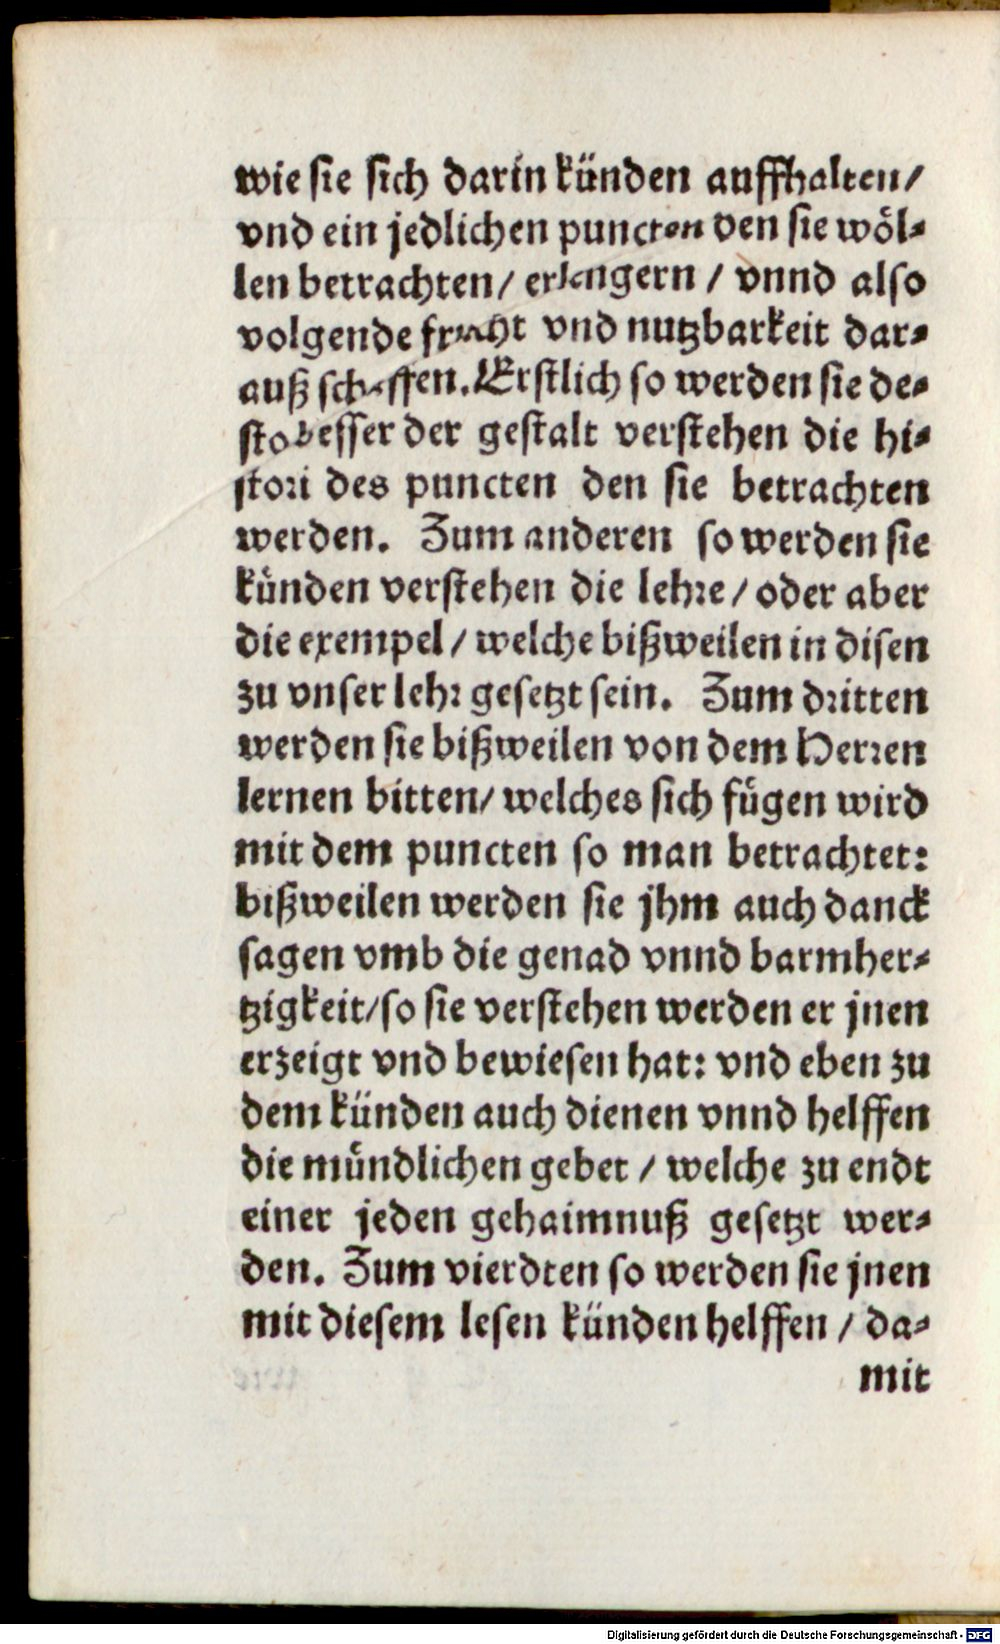 wie sie sich darin künden auffhalten/
vnd ein jedlichen puncten den sie wöl-
len betrachten/ erlengern / vnnd also
volgende frucht vnd nutzbarkeit dar-
auß schaffen. Erstlich so werden sie de-
sto besser der gestalt verstehen die hi-
stori des puncten den sie betrachten
werden. Zum anderen so werden sie
künden verstehen die lehre / oder aber
die exempel / welche bißweilen in disen
zu vnser lehr gesetzt sein. Zum dritten
werden sie bißweilen von dem Herren
lernen bitten/ welches sich fügen wird
mit dem puncten so man betrachtet:
bißweilen werden sie jhm auch danck
sagen vmb die genad vnnd barmher-
tzigkeit/so sie verstehen werden er jnen
erzeigt vnd bewiesen hat: vnd eben zu
dem künden auch dienen vnnd helffen
die mündlichen gebet / welche zu endt
einer jeden gehaimnuß gesetzt wer-
den. Zum vierdten so werden sie jnen
mit diesem lesen künden helffen / da-
mit
Digitalisierung gefördert durch die Deutsche Forschungsgemeinschaft - DFG